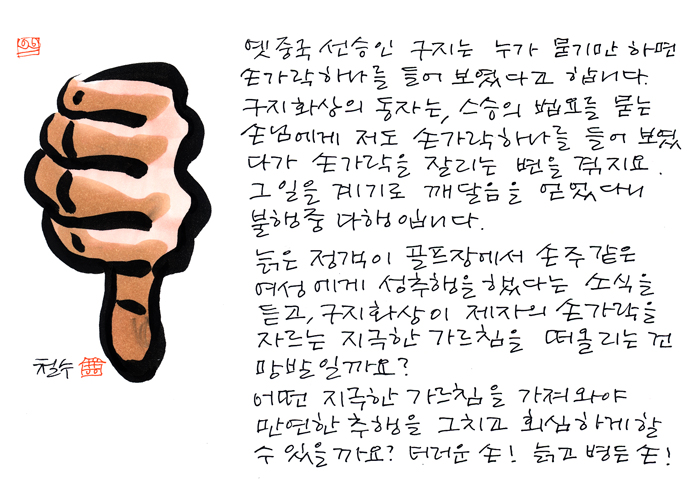 옛 중국 선승인 구지는 누가 묻기만 하면
손가락 하나를 들어 보였다고 합니다.
구지화상의 동자는, 스승의 법요를 묻는
손님에게 저도 손가락하나를 들어 보였
다가 손가락을 잘리는 변을 겪지요.
그 일을 계기로 깨달음을 얻었다니
불행중 다행입니다.
늙은 정객이 골프장에서 손주같은
여성에게 성추행을 했다는 소식을
듣고, 구지화상이 제자의 손가락을
자르는 지극한 가르침을 떠올리는 건
망발일까요?
어떤 지극한 가르침을 가져와야
만연한 추행을 그치고 회심하게 할
수 있을까요? 더러운 손! 늙고 병든 손!
철수